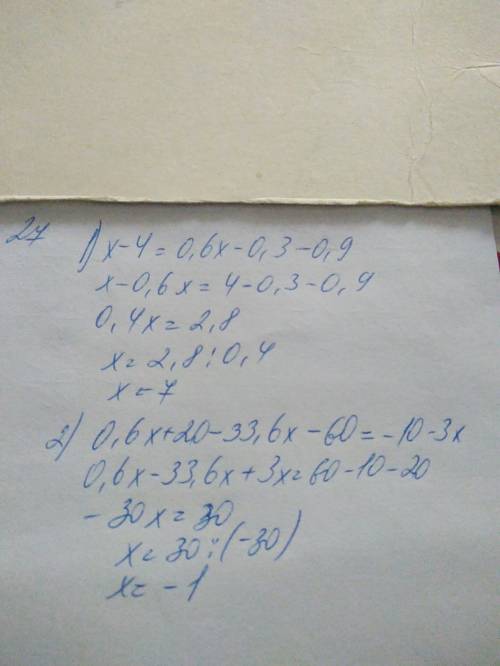 27
1) x-4=0,6x-0,3-0,9
x-0,6x=4-0,3-0,9
0,4x=2,8
x=2,8:0,4
x=7
2) 0,6x+20-33,6x-60=-10-3x
0,6x-33,6x+3x=60-10-20
-30x=30
x=30:(-30)
x=-1